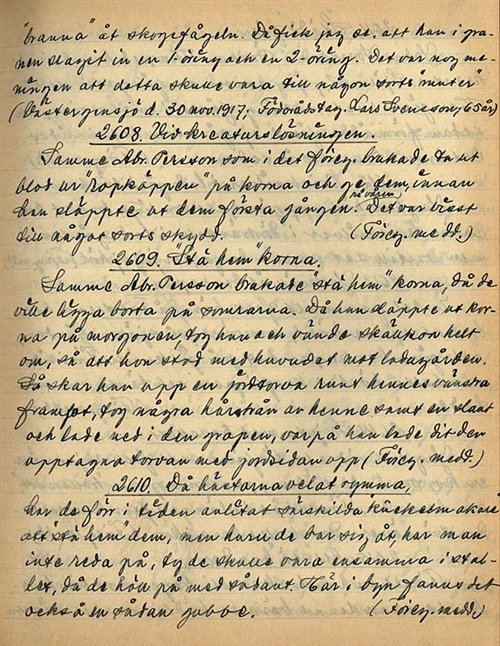 "branna" åt skogsfågeln. Då fick jag se, att han i gra-
nen slagit in en 1-öring och en 2-öring. Det var nog me-
ningen att detta skulle vara till någon sorts "muter"
(Västergensjö d. 30 nov. 1917; Födorådstag. Lars Svensson, 65 år)
2608. Vid kreaturslösningen.
Samme Abr. Persson som i det föreg. brukade ta ut
blod ur "ropkäppen" på korna och ge dem, innan
han släppte ut dem första gången på våren. Det var visst
till något sorts skydd. (Föreg. medd.)
2609. "Stä hem" korna.
Samme Abr. Persson brukade "stä hem" korna, då de
ville ligga borta på somrarna. Då han släppte ut kor-
na på morgonen, tog han och vände skällkon helt
om, så att hon stod med huvudet mot ladugården.
Så skar han upp en jordtorva runt hennes vänstra
framfot, tog några hårstrån av henne samt en slant
och lade ned i den gropen, varpå han lade dit den
upptagna torvan med jordsidan upp (Föreg. medd.)
2610. Då hästarna velat rymma,
har de förr i tiden anlitat särskilda
att "stä hem" dem, men huru de bar sig åt, har man
inte reda på, ty de skulle vara ensamma i stal-
let, då de höll på med sådant. Här i byn fanns det
också en sådan gubbe. (Föreg. medd.)